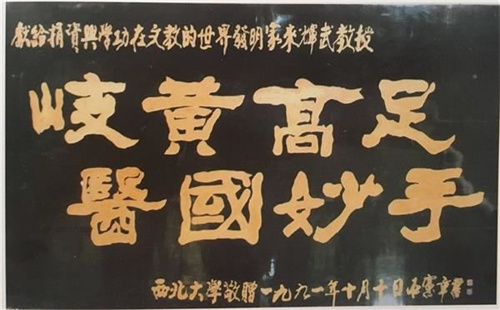 獻給捐資興學功在文教的世界發明家来輝武教授
岐黄高足
醫國妙手
西北大學敬贈一九九一年十月十日憲章書